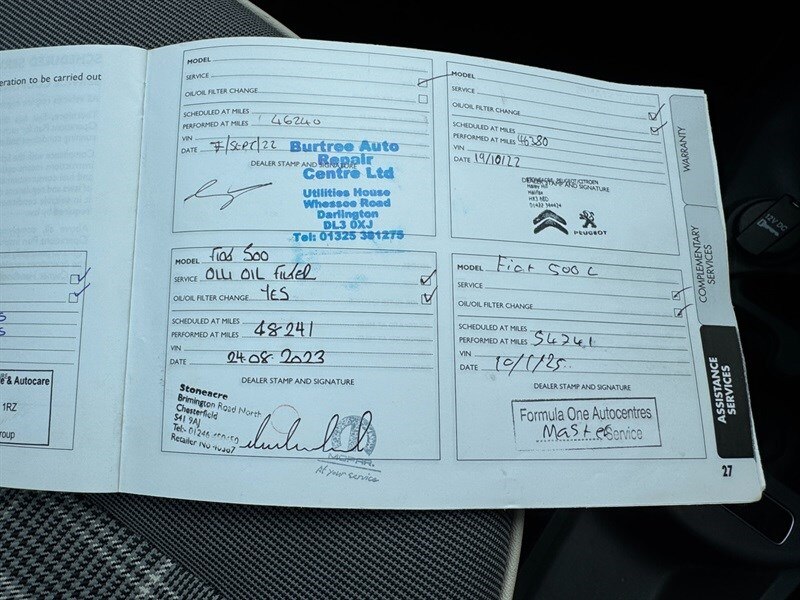 eration to be carried out
e & Autocare
1RZ
roup
MODEL
SERVICE
OIL/OIL FILTER CHANGE
SCHEDULED AT MILES
PERFORMED AT MILES 46240
VIN
DATE 7/SEPT/22
DEALER STAMP AND SIGNATURE
Burtree Auto
Repair
Centre Ltd
Utilities House
Whessoe Road
Darlington
DL3 0XJ
Tel: 01325 381275
MODEL
SERVICE
OIL/OIL FILTER CHANGE
SCHEDULED AT MILES
PERFORMED AT MILES 46380
VIN
DATE 19/10/22
DEALER STAMP AND SIGNATURE
PEUGEOT/CITROEN
Halifax
PEUGEOT
MODEL Fiat 500
SERVICE OIL FILTER
OIL/OIL FILTER CHANGE YES
SCHEDULED AT MILES
PERFORMED AT MILES 48241
VIN
DATE 24.08.2023
DEALER STAMP AND SIGNATURE
Stoneacre
Brimington Road North
Chesterfield
S41 9AJ
Tel:- 01246
Retailer No
MOPAR
At your service
MODEL Fiat 500 C
SERVICE
OIL/OIL FILTER CHANGE
SCHEDULED AT MILES
PERFORMED AT MILES 54241
VIN
DATE 10/1/25
DEALER STAMP AND SIGNATURE
Formula One Autocentres
Master Service
WARRANTY
COMPLEMENTARY
SERVICES
ASSISTANCE
SERVICES
27
12V DC